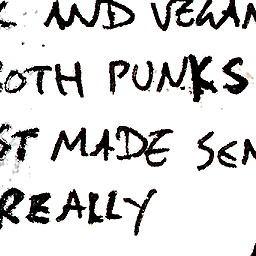 AND VEGAN
BOTH PUNKS
ST MADE SEN
REALLY